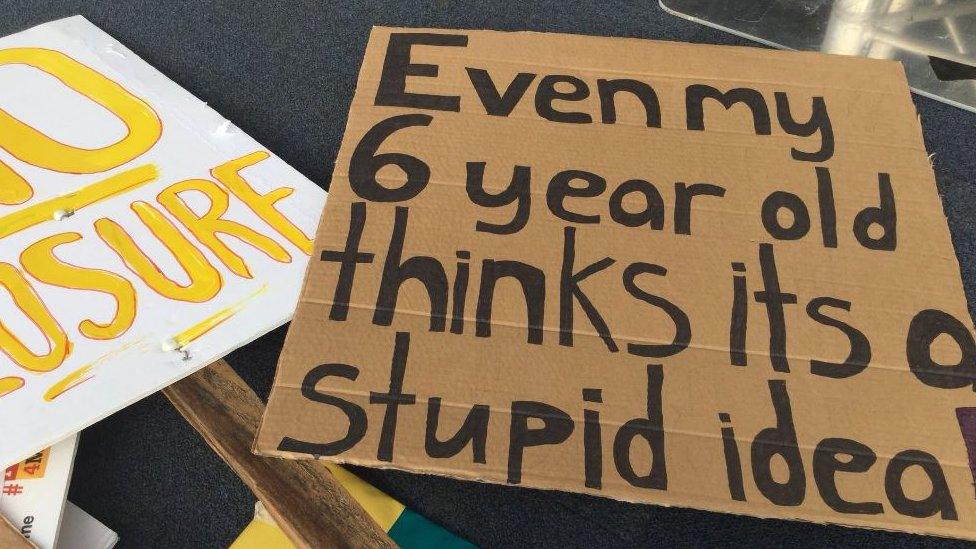 Even my
6 year old
thinks its a
stupid idea
O
OSURE
#4M
ne